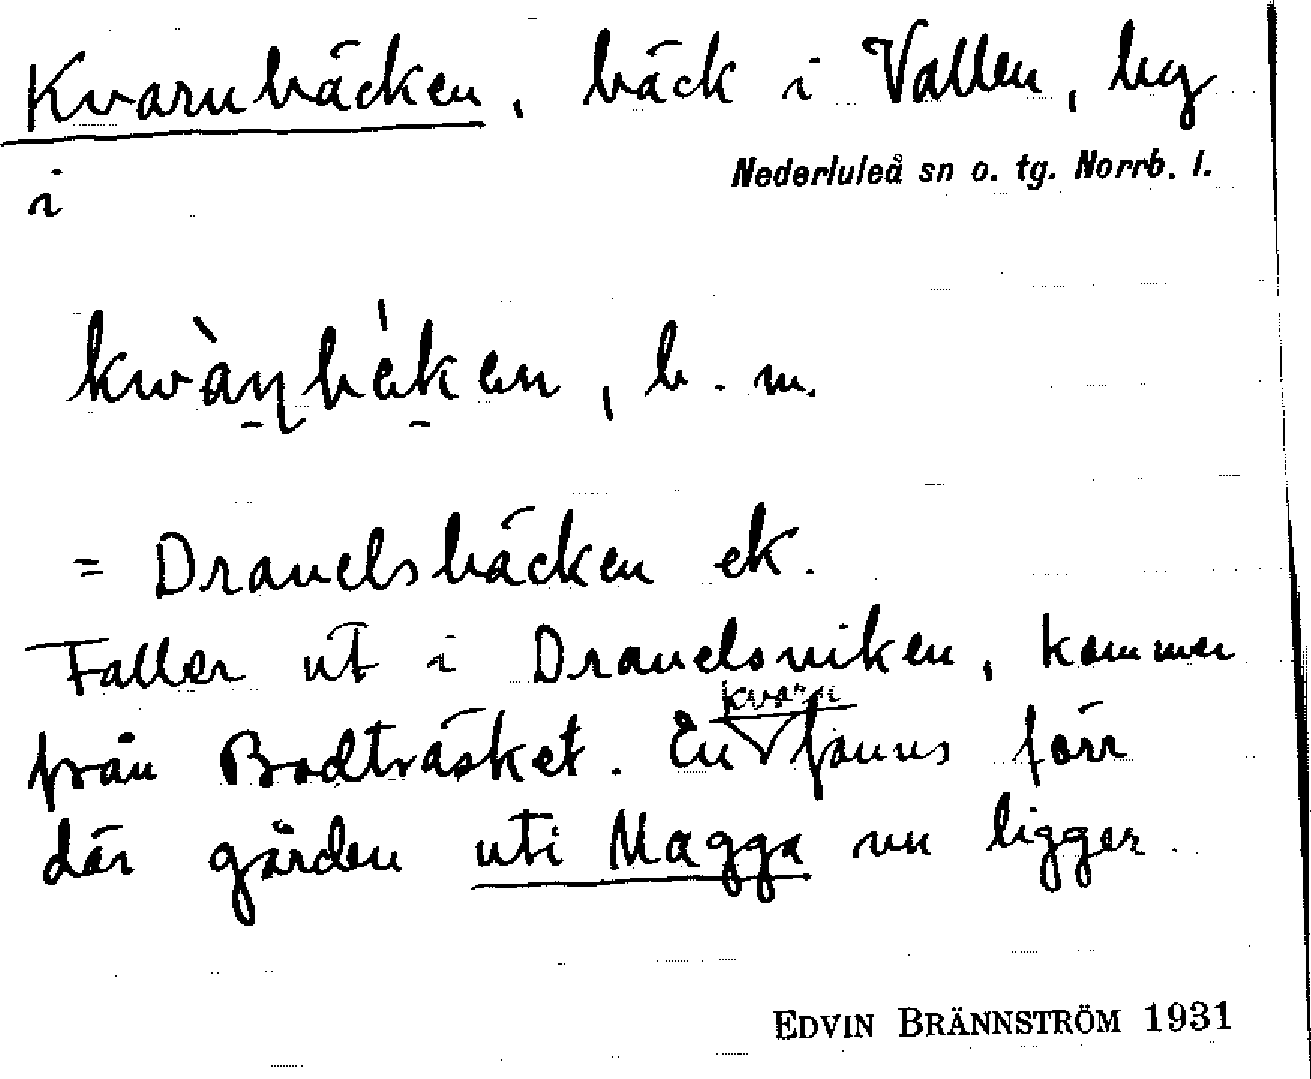 Kvarnbäcken, bäck i Vallen, by
i Nederluleå sn o. tg. Norrb. l.
kwàṇbèken, b. m.
= Dravelsbäcken ek.
Faller ut i Dravelsviken, kommer
kvarn
från Bodträsket. En fanns förr
där gården uti Magga nu ligger.
EDVIN BRÄNNSTRÖM 1931